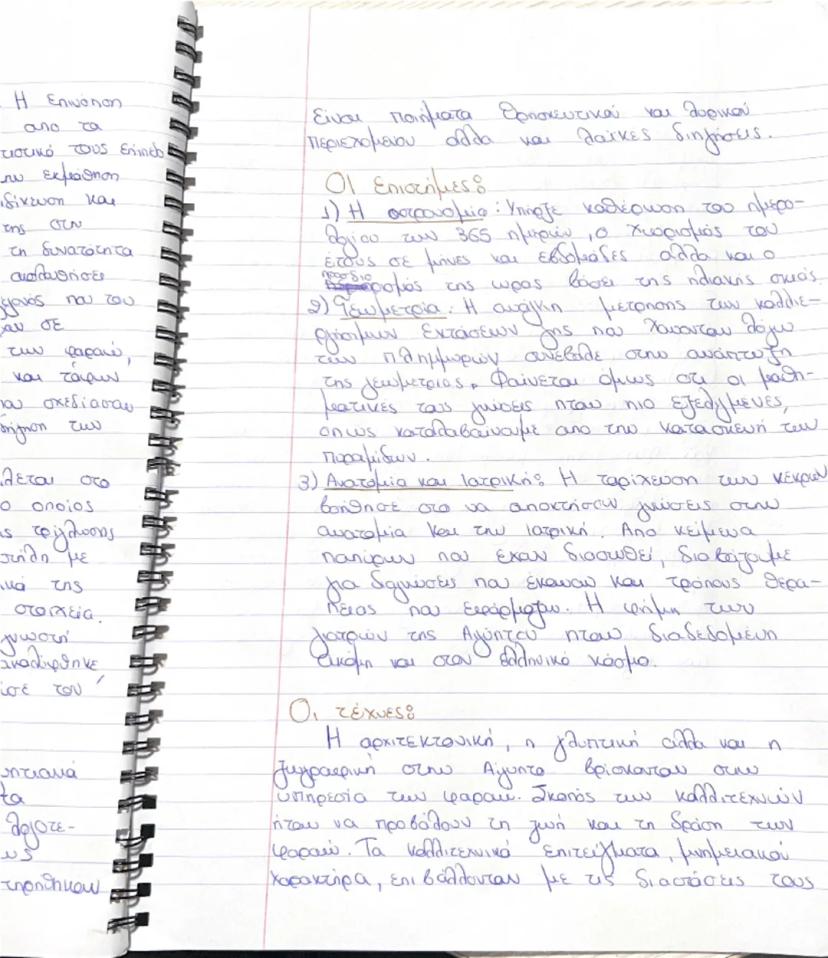 Η επινόηση
απο τα
τιστικό τους επίπεδο
εκμάθηση
και
της στη
τη δυνατότητα
ακολουθήσει
που του
σε
των φαραώ,
και τάφων
σχεδίασαν
των
στο
ο οποίος
τρίγλωσσης
στήλη με
της
στοιχεία.
γνωστή
ανακαλύφθηκε
του
τα
λογοτε-
τηρήθηκαν
είναι ποιήματα θρησκευτικού και λυρικού
περιεχομένου αλλα και λαϊκές διηγήσεις.
Οι επιστήμες:
1) Η αστρονομία: Υπήρξε καθιέρωση του ημερο-
λογίου των 365 ημερών, ο χωρισμός του
έτους σε μήνες και εβδομάδες αλλα και ο
προσδιορισμός της ώρας βάσει της ηλιακής σκιάς.
2) Γεωμετρία: Η ανάγκη μέτρησης των καλλιε-
ργίσημων εκτάσεων γης που χάνονταν λόγω
των πλημμυρών συνέβαλε στην ανάπτυξη
της γεωμετρίας. Φαίνεται όμως οτι οι μαθη-
ματικές τους γνώσεις ηταν πιο εξελιγμένες,
όπως καταλαβαίνουμε απο την κατασκευή των
πυραμίδων.
3) Ανατομία και Ιατρική: Η ταρίχευση των νεκρών
βοήθησε στο να αποκτήσουν γνώσεις στην
ανατομία και την ιατρική. Απο κείμενα
παπύρων που έχουν διασωθεί, διαβάζουμε
για διαγνώσεις που έκαναν και τρόπους θερα-
πείας που εφάρμοζαν. Η φήμη των
γιατρών της Αιγύπτου ηταν διαδεδομένη
ακόμη και στον ελληνικό κόσμο.
Οι τέχνες:
Η αρχιτεκτονική, η γλυπτική αλλα και η
ζωγραφική στην Αίγυπτο βρίσκονταν στην
υπηρεσία των φαραώ. Σκοπός των καλλιτεχνών
ήταν να προβάλουν τη ζωή και τη δράση των
φαραώ. Τα καλλιτεχνικά επιτεύγματα, μνημειακού
χαρακτήρα, επιβάλλονταν με τις διαστάσεις τους